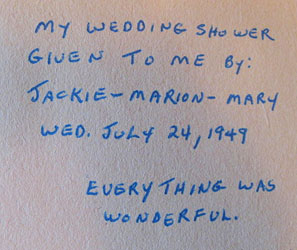 MY WEDDING SHOWER
GIVEN TO ME BY:
JACKIE-MARION-MARY
WED. JULY 24, 1949
EVERYTHING WAS
WONDERFUL.